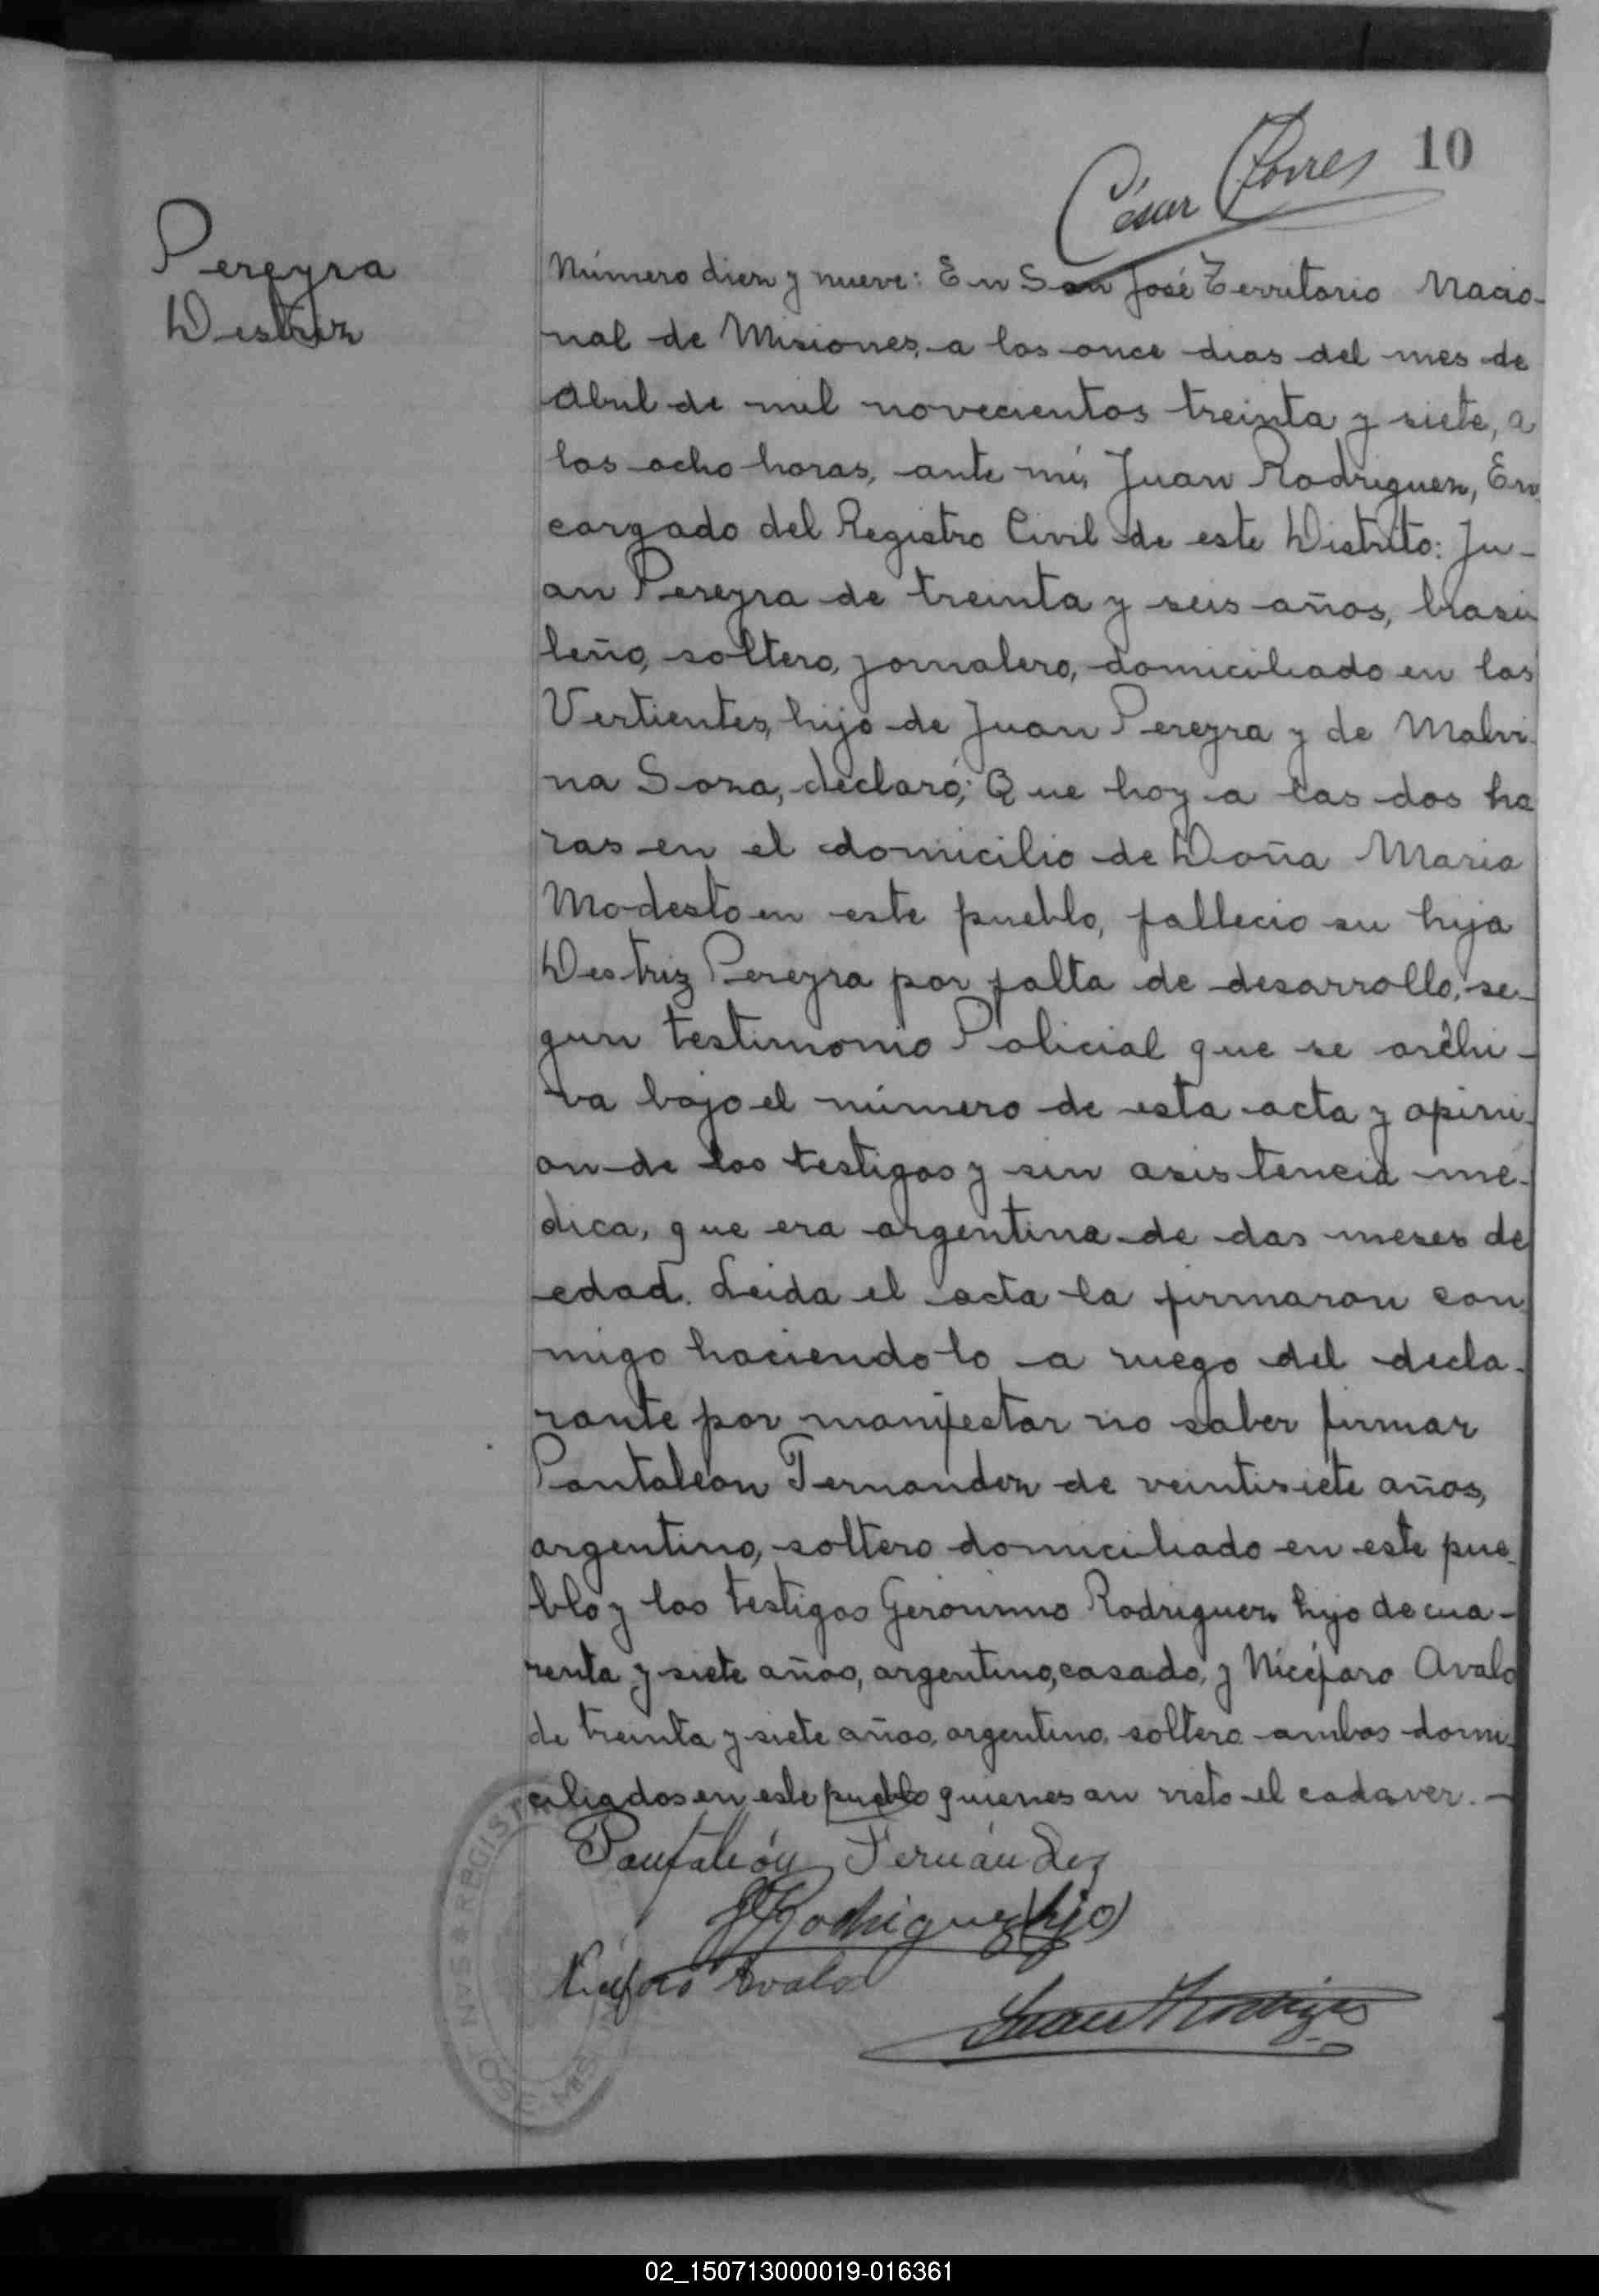 César Torres 10
Pereyra
Destriz
Número diez y nueve: En San José Territorio Nacio-
nal de Misiones, a los once dias del mes de
Abril de mil novecientos treinta y siete, a
las ocho horas, ante mi, Juan Rodriguez, En-
cargado del Registro Civil de este Distrito: Ju-
an Pereyra de treinta y seis años, brasi
leño, soltero, jornalero, domiciliado en las
Vertientes, hijo de Juan Pereyra y de Malvi-
na Soza, declaró; Que hoy a las dos ho
ras en el domicilio de Doña Maria
Modesto en este pueblo, fallecio su hija
Destriz Pereyra por falta de desarrollo, se-
gun testimonio Policial que se archi-
va bajo el número de esta acta y opini-
on de los testigos y sin asistencia mé-
dica, que era argentina de dos meses de
edad. Leida el acta la firmaron con
migo haciendolo a ruego del decla-
rante por manifestar no saber firmar
Pantaleon Fernandez de veintisiete años,
argentino, soltero domiciliado en este pue-
blo y los testigos Geronimo Rodriguez hijo de cua-
renta y siete años, argentino, casado, y Nicéforo Avalo
de treinta y siete años, argentino, soltero ambos domi-
ciliados en este pueblo quienes an visto el cadaver. -
Pantaleón Fernández
G Rodriguez (hijo)
Nicéforo Avalo
Juan Rodriguez
SAN JOSÉ MIS REGIST
02_150713000019-016361